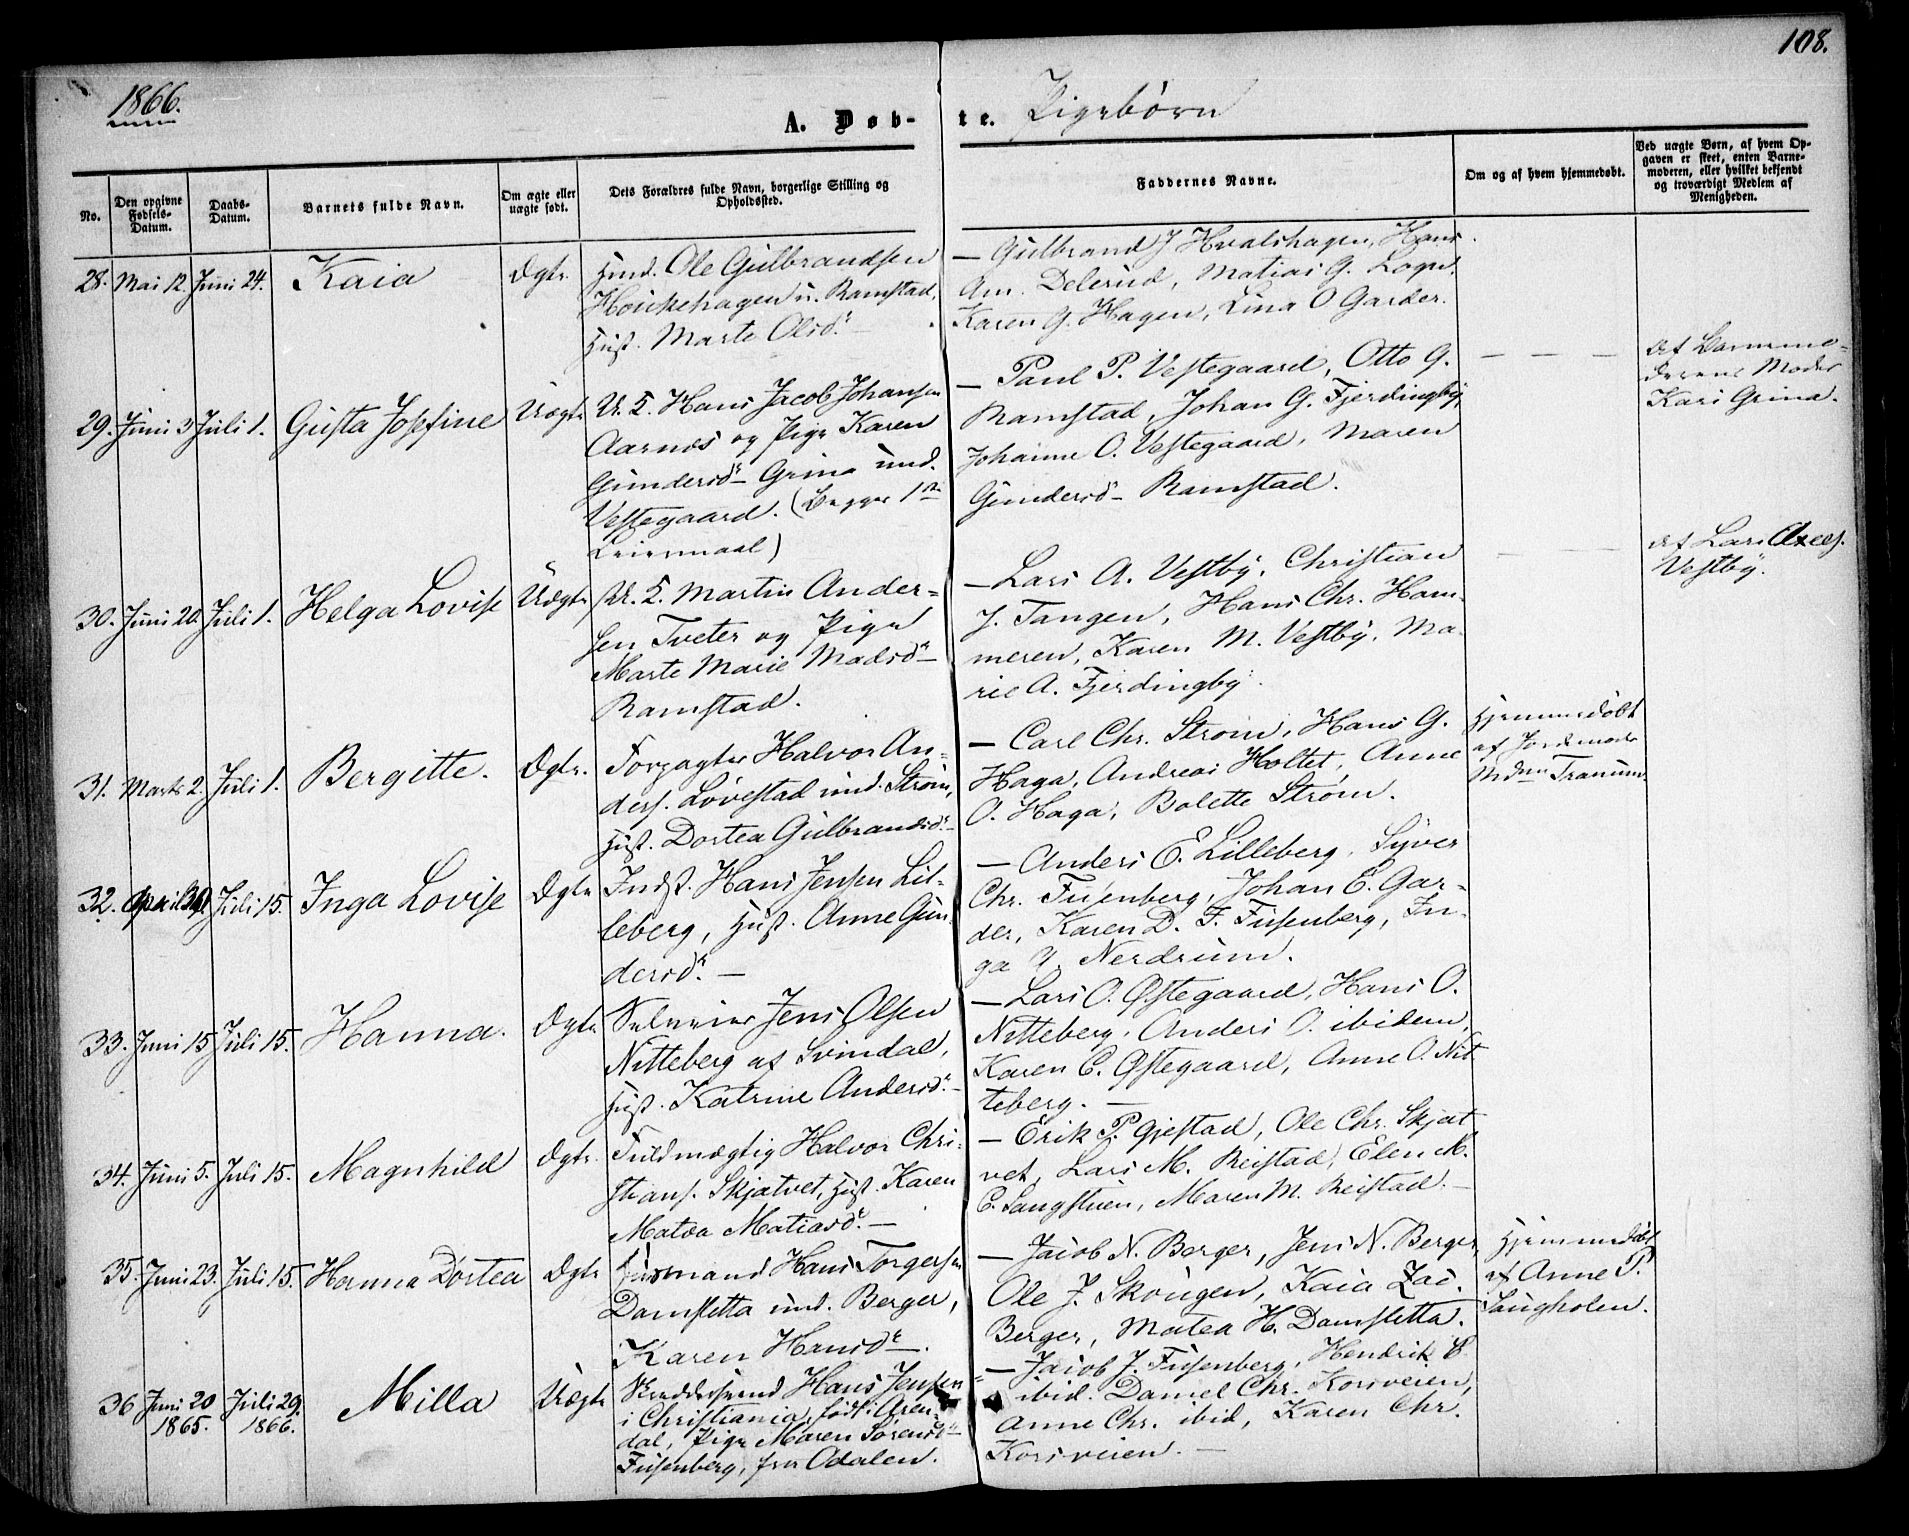 1866.
108.
A. Døb- te. Pigebørn
No.
Den opgivne Fødsels-Datum.
Daabs-Datum.
Barnets fulde Navn.
Om ægte eller uægte født.
Dets Forældres fulde Navn, borgerlige Stilling og Opholdssted.
Faddernes Navne.
Om og af hvem hjemmedøbt.
Ved uægte Børn, af hvem Op-
gaven er skeet, enten Barne-
moderen, eller hvilket bekjendt
og troværdigt Medlem af
Menigheden.
28. Mai 12. Juni 24. Kaia Dgtr.
Hmd. Ole Gulbrandsen
u. Ramstad,
Hust. Marte Olsdr.
— Gulbrand J Hvalshagen, Hans
Am. Delerud, Matias G.
Karen G. Hagen, Lina O Garder.
29. Juni 3 Juli 1. Gusta Josefine Uægte
U. K. Hans Jacob Johansen
Aarnes og Pige Karen
Gundersdr Grina und.
Vestegaard. (Begges 1ste
Leiermaal)
— Paul P. Vestegaard, Otto G.
Ramstad, Johan G. Fjerdingby,
Johanne O. Vestegaard, Maren
Gundersdr Ramstad.
— — —
Af Barnemo-
derens Moder
Kari Grina.
30. Juni 20. Juli 1. Helga Lovise Uægte
U. K. Martin Ander-
sen Tveter og Pige
Marte Marie Madsdr
Ramstad.
— Lars A. Vestby, Christian
J. Tangen, Hans Chr. Ham-
meren, Karen M. Vestby, Ma-
rie A. Fjerdingby.
— — —
Af Lars
Vestby.
31. Marts 2. Juli 1. Bergitte. Dgtr.
Forpagter Halvor An-
ders. Løvestad und. Strøm,
Hust. Dortea Gulbrandsdr.
— Carl Chr. Strøm, Hans G.
Haga, Andreas Holtet, Anne
O. Haga, Bolette Strøm.
Hjemmedøbt
af Jordemoder
Mdm Tranum
32. April Juli 15. Inga Lovise Dgtr
Indst. Hans Jensen Lil-
leberg, Hust. Anne Gun-
dersdr. —
— Anders E. Lilleberg, Syver
Chr. Fusenberg, Johan E. Gar-
der, Karen D. F. Fusenberg, In-
ga Nerdrum.
33. Juni 15 Juli 15. Hanna. Dgtr
Selveier Jens Olsen
Nitteberg af Svindal,
Hust. Katrine Andersdr. —
— Lars O. Østegaard, Hans O.
Nitteberg, Anders O. ibidem,
Karen E. Østegaard, Anne O. Nit
teberg. —
34. Juni 5. Juli 15. Magnhild Dgtr.
Fuldmægtig Halvor Chri-
stians. Skjatvet, Hust. Karen
Matea Matiasdr. —
— Erik P. Gjestad, Ole Chr. Skjat
vet, Lars M. Reistad, Elen M.
C. Sangstuen, Maren M. Reistad. —
35. Juni 23. Juli 15. Hanna Dortea Dgtr
Husmand Hans Torgersen
Damsletta und. Berger,
Karen Hansdr.
— Jacob N. Berger, Jens N. Berger,
Ole J. Skougen, Kaia Zac.
Berger, Matea H. Damsletta.
Hjemmedøbt
af Anne P.
Saugholen.
36 Juni 20 1865. Juli 29. 1866. Milla Uægte
Skreddersvend Hans Jensen
i Christiania, født i Aren-
dal, Pige Maren Sørensdr
Fusenberg, fra Odalen.
— Jacob J. Fusenberg, Hendrik
ibid. Daniel Chr. Korsveien,
Anne Chr. ibid, Karen Chr.
Korsveien. —